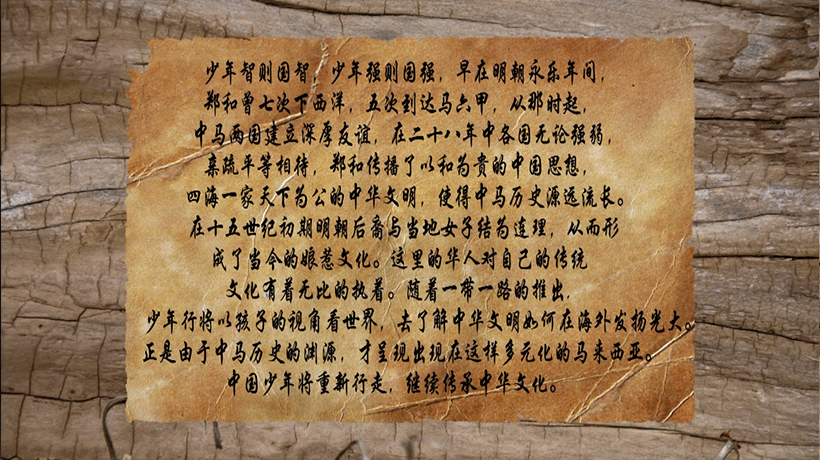 少年智则国智，少年强则国强，早在明朝永乐年间，
郑和曾七次下西洋，五次到达马六甲，从那时起，
中马两国建立深厚友谊，在二十八年中各国无论强弱，
亲疏平等相待，郑和传播了以和为贵的中国思想，
四海一家天下为公的中华文明，使得中马历史源远流长。
在十五世纪初期明朝后裔与当地女子结为连理，从而形
成了当今的娘惹文化。这里的华人对自己的传统
文化有着无比的执着。随着一带一路的推出，
少年行将以孩子的视角看世界，去了解中华文明如何在海外发扬光大。
正是由于中马历史的渊源，才呈现出现在这样多元化的马来西亚。
中国少年将重新行走，继续传承中华文化。